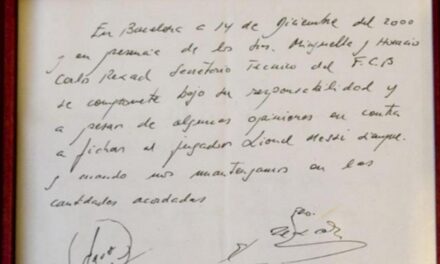 En Barcelona a 14 de diciembre del 2000
y en presencia de los Srs. Minguella y Horacio
Carlo Rexach Secretario Tecnico del F.C.B
se compromete bajo su responsabilidad y
a pesar de algunas opiniones en contra
a fichar al jugador Lionel Messi siempre
y cuando nos mantengamos en las
cantidades acordadas